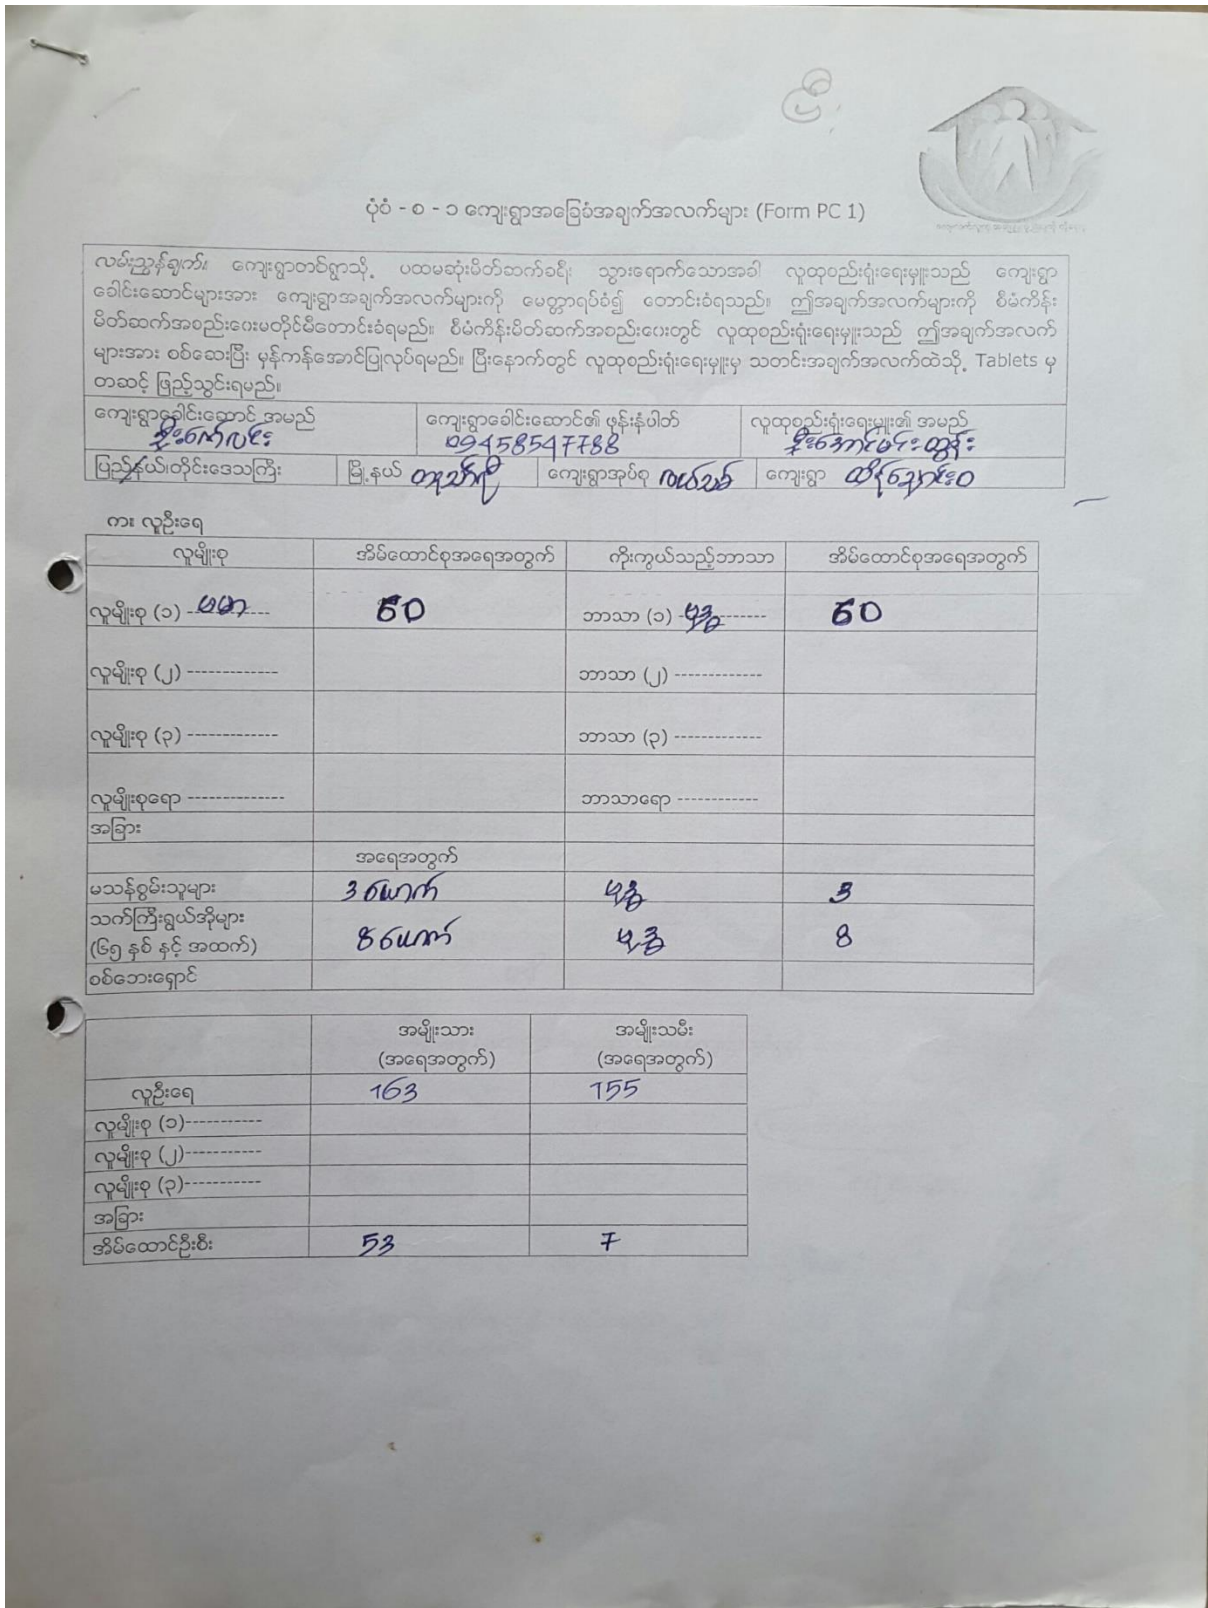 ပြီ
ပုံစံ - စ - ၁ ကျေးရွာအခြေခံအချက်အလက်များ (Form PC 1)
လမ်းညွှန်ချက်။ ကျေးရွာတစ်ရွာသို့ ပထမဆုံးမိတ်ဆက်ခရီး သွားရောက်သောအခါ လူထုစည်းရုံးရေးမှူးသည် ကျေးရွာ
ခေါင်းဆောင်များအား ကျေးရွာအချက်အလက်များကို မေတ္တာရပ်ခံ၍ တောင်းခံရသည်။ ဤအချက်အလက်များကို စီမံကိန်း
မိတ်ဆက်အစည်းဝေးမတိုင်မီတောင်းခံရမည်။ စီမံကိန်းမိတ်ဆက်အစည်းဝေးတွင် လူထုစည်းရုံးရေးမှူးသည် ဤအချက်အလက်
များအား စစ်ဆေးပြီး မှန်ကန်အောင်ပြုလုပ်ရမည်။ ပြီးနောက်တွင် လူထုစည်းရုံးရေးမှူးမှ သတင်းအချက်အလက်ထဲသို့ Tablets မှ
တဆင့် ဖြည့်သွင်းရမည်။
ကျေးရွာခေါင်းဆောင် အမည် ကျေးရွာခေါင်းဆောင်၏ ဖုန်းနံပါတ် လူထုစည်းရုံးရေးမှူး၏ အမည်
ဦးဇော်လင်း 09458547788 ဦးအောင်မင်းထွန်း
ပြည်နယ်/တိုင်းဒေသကြီး မြို့နယ် တနင်္သာရီ ကျေးရွာအုပ်စု ကျေးရွာ ထိန်ချောင်းဝ
က။ လူဦးရေ
လူမျိုးစု အိမ်ထောင်စုအရေအတွက် ကိုးကွယ်သည့်ဘာသာ အိမ်ထောင်စုအရေအတွက်
လူမျိုးစု (၁) ဗမာ 60 ဘာသာ (၁) ဗုဒ္ဓ 60
လူမျိုးစု (၂) ------------- ဘာသာ (၂) -------------
လူမျိုးစု (၃) ------------- ဘာသာ (၃) -------------
လူမျိုးစုရော -------------- ဘာသာရော ------------
အခြား
အရေအတွက်
မသန်စွမ်းသူများ 3 ယောက် ဗုဒ္ဓ 3
သက်ကြီးရွယ်အိုများ
(၆၅ နှစ် နှင့် အထက်) 8 ယောက် ဗုဒ္ဓ 8
စစ်ဘေးရှောင်
အမျိုးသား အမျိုးသမီး
(အရေအတွက်) (အရေအတွက်)
လူဦးရေ 163 155
လူမျိုးစု (၁)-----------
လူမျိုးစု (၂)-----------
လူမျိုးစု (၃)-----------
အခြား
အိမ်ထောင်ဦးစီး 53 7